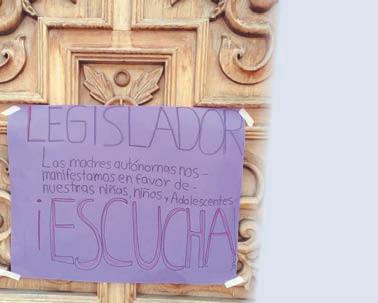 LEGISLADOR
Las madres autónomas nos -
manifestamos en favor de -
nuestras niñas, niños y Adolescentes
¡ESCUCHA!